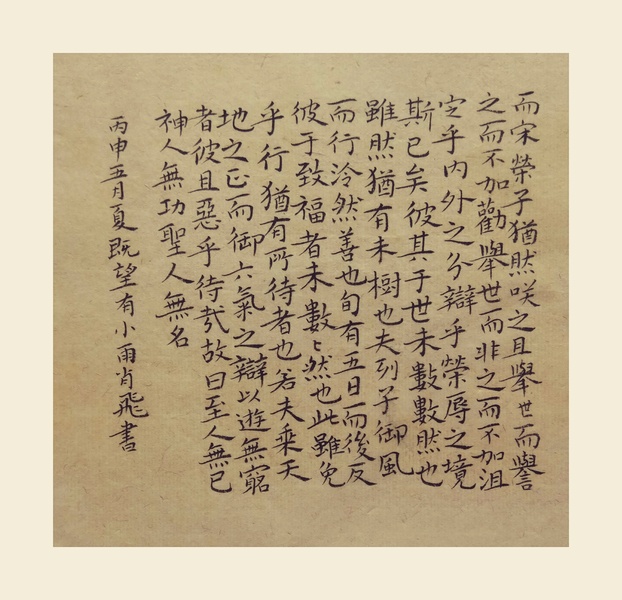 而宋榮子猶然咲之且舉世而譽
之而不加勸舉世而非之而不加沮
定乎内外之分辯乎榮辱之境
斯已矣彼其于世未數數然也
雖然猶有未樹也夫列子御風
而行泠然善也旬有五日而後反
彼于致福者未數〻然也此雖免
乎行猶有所待者也若夫乘天
地之正而御六氣之辯以遊無窮
者彼且惡乎待哉故曰至人無已
神人無功聖人無名
丙申五月夏既望有小雨肖飛書